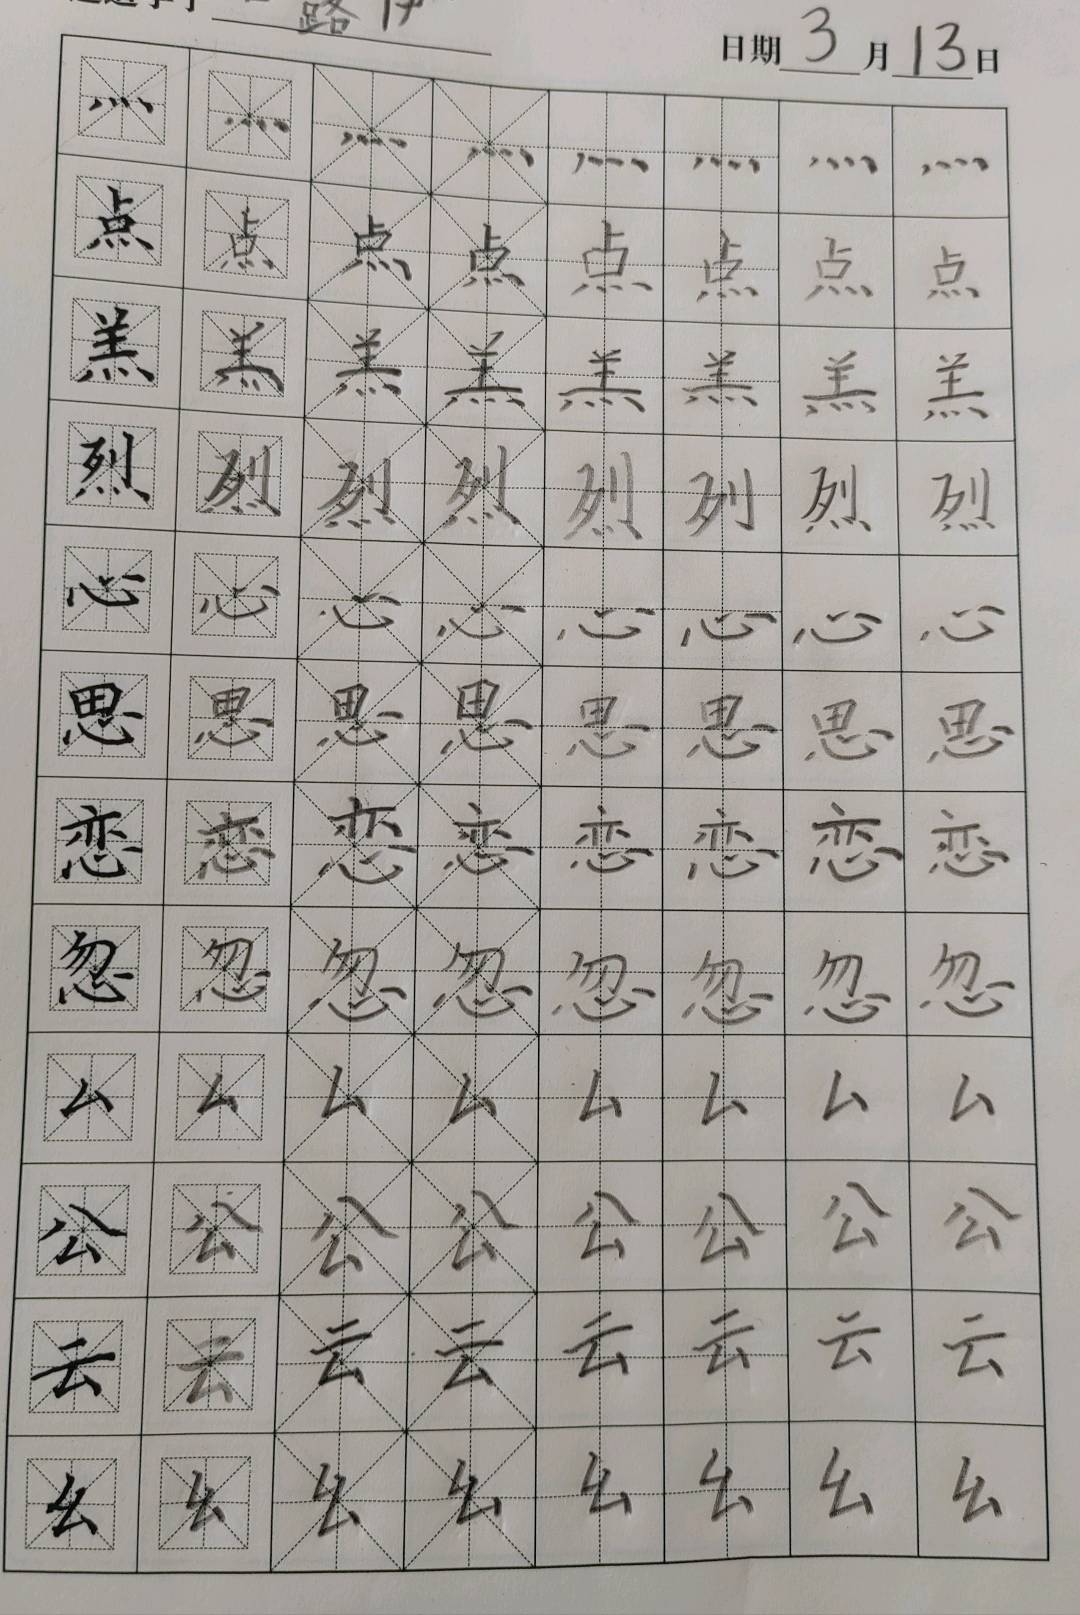 路伊
日期3月13日
灬灬灬灬灬灬灬灬
点点点点点点点点
羔羔羔羔羔羔羔羔
烈烈烈烈烈列烈烈
心心心心心心心心
思思思思思思思思
恋恋恋恋恋恋恋恋
忽忽忽忽忽忽忽忽
厶厶厶厶厶厶厶厶
公公公公公公公公
云云云云云云云云
幺幺幺幺幺幺幺幺